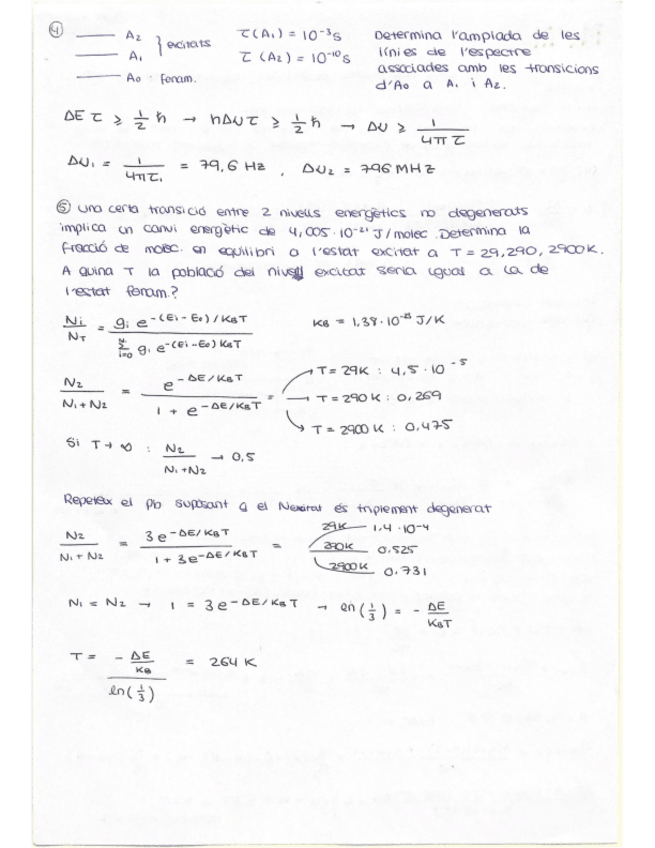 ④ A₂ } excitats τ(A₁) = 10⁻³ s Determina l'amplada de les
A₁ τ(A₂) = 10⁻¹⁰ s línies de l'espectre
A₀ : fonam. associades amb les transicions
d'A₀ a A₁ i A₂.
ΔE τ ≥ 1/2 ħ → hΔν τ ≥ 1/2 ħ → Δν ≥ 1/(4πτ)
Δν₁ = 1/(4πτ₁) = 79,6 Hz , Δν₂ = 796 MHz
⑤ Una certa transició entre 2 nivells energètics no degenerats
implica un canvi energètic de 4,005·10⁻²¹ J/molec. Determina la
fracció de molèc. en equilibri a l'estat excitat a T = 29, 290, 2900K.
A quina T la població del nivell excitat seria igual a la de
l'estat fonam.?
Ni/NT = gi e^(-(Ei-E0)/KBT) / Σ i=0 gi e^(-(Ei-E0)KBT) KB = 1,38·10⁻²³ J/K
N₂/(N₁+N₂) = e^(-ΔE/KBT) / (1 + e^(-ΔE/KBT)) =
T = 29K : 4,5·10⁻⁵
T = 290K : 0,269
T = 2900K : 0,475
Si T → ∞ : N₂/(N₁+N₂) → 0,5
Repeteix el pb suposant q el Nexcitat és triplement degenerat
N₂/(N₁+N₂) = 3e^(-ΔE/KBT) / (1 + 3e^(-ΔE/KBT)) =
29K 1,4·10⁻⁴
290K 0.525
2900K 0.731
N₁ = N₂ → 1 = 3e^(-ΔE/KBT) → ln(1/3) = - ΔE/KBT
T = (-ΔE/KB) / ln(1/3) = 264 K